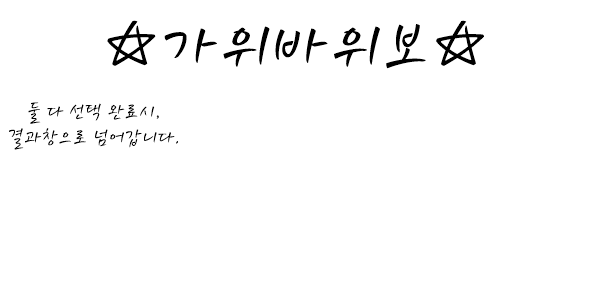 ☆가위바위보☆
둘 다 선택 완료시,
결과창으로 넘어갑니다.